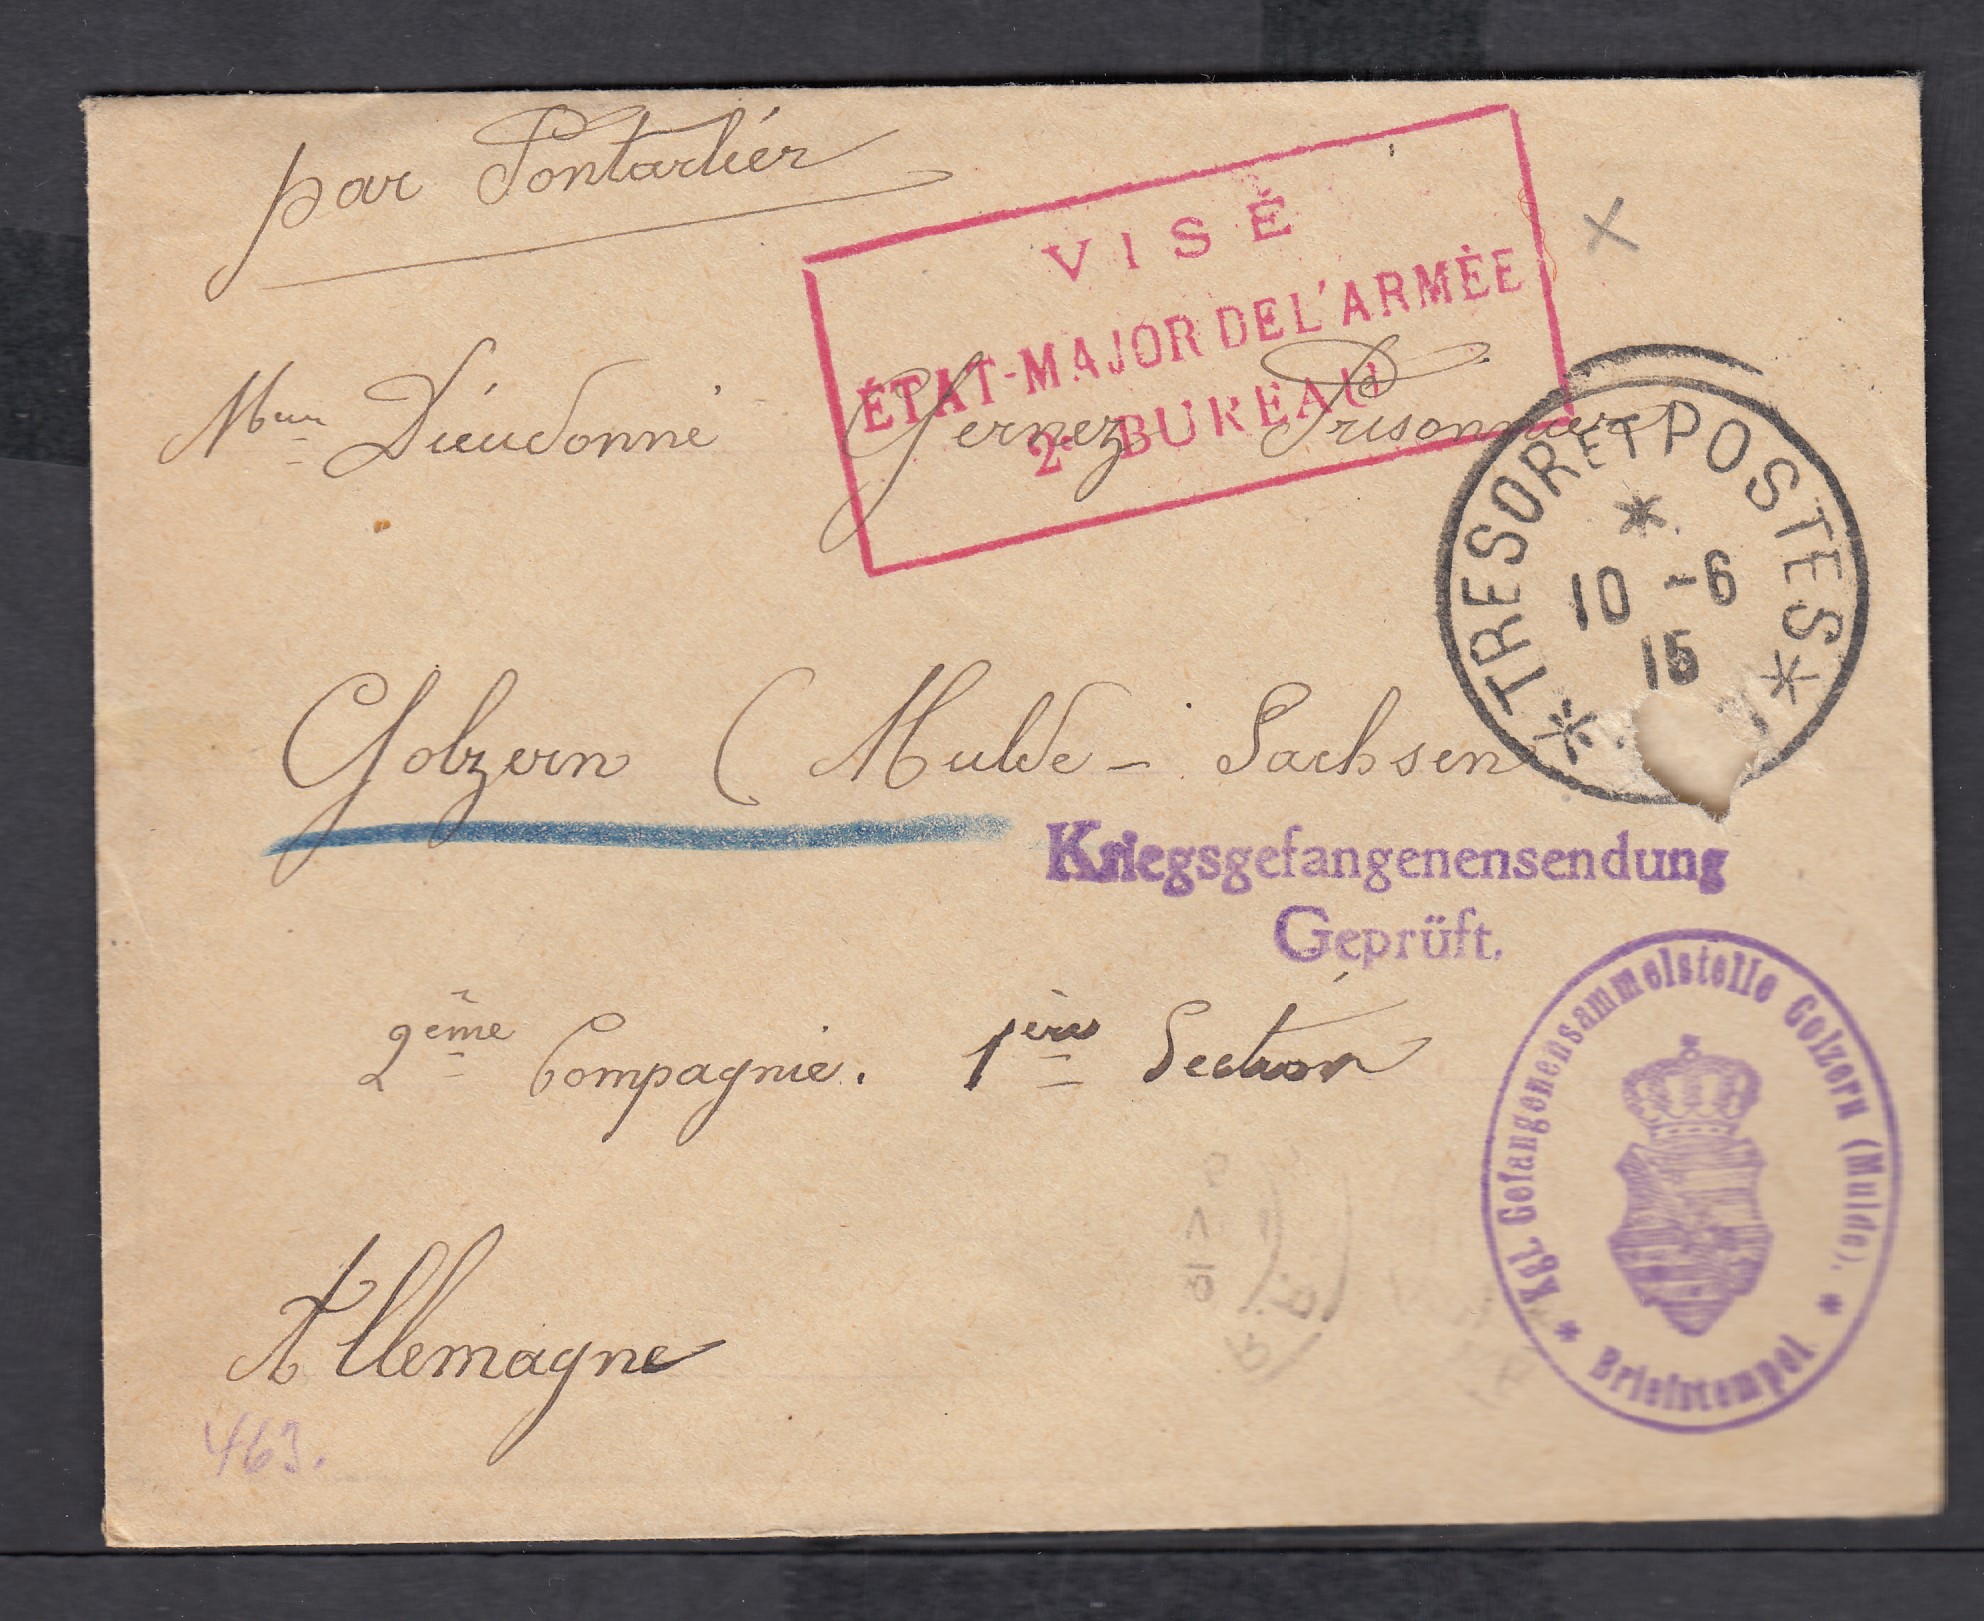 par Pontarlier
VISÉ
ÉTAT-MAJOR DE L'ARMÉE
2e BUREAU
Dieudonné Gernez Prisonnier
TRESOR ET POSTES
10 -6
15
Golzern (Mulde - Sachsen
Kriegsgefangenensendung
Geprüft.
2ème Compagnie. 1ère Section
Kgl. Gefangenensammelstelle Golzern (Mulde).
* Briefstempel *
Allemagne
463.